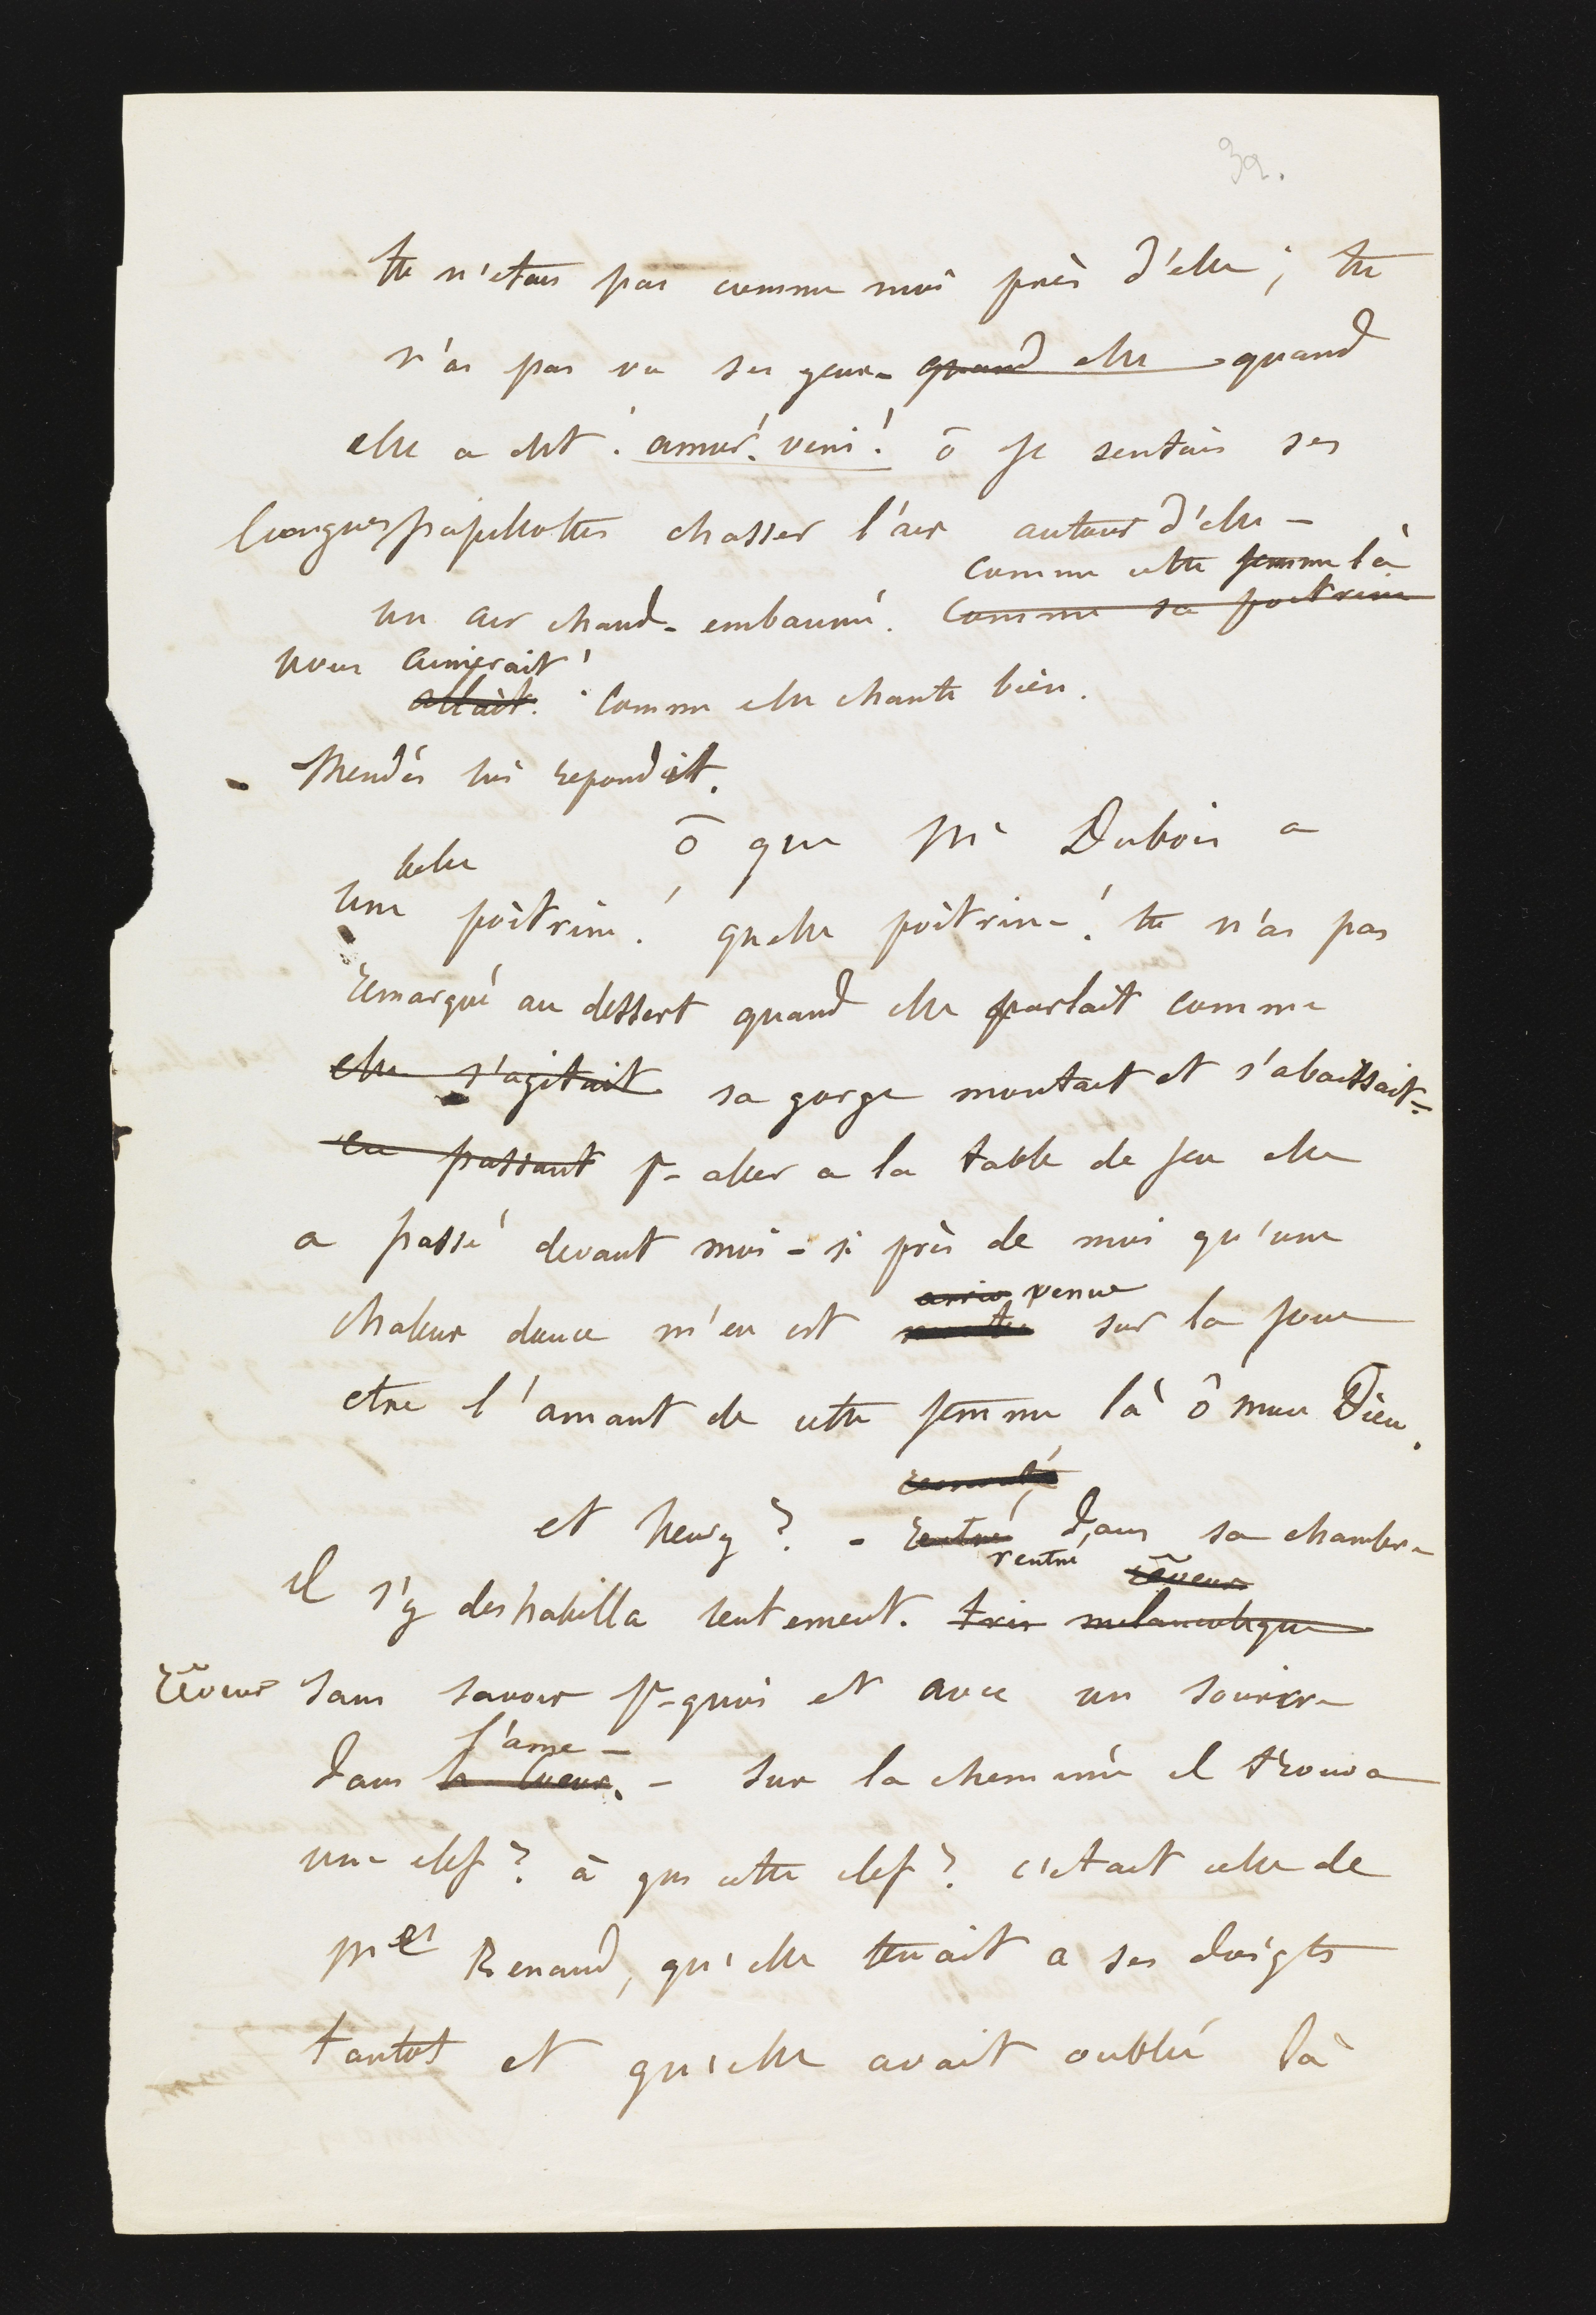 39.
tu n'etais pas comme moi près d'elle ; tu
n'as pas vu ses yeux - quand elle quand
elle a dit : amor ! veni ! ô je sentais ses
longues papillottes chasser l'air autour d'elle -
comme cette femme là
un air chaud - embaumé. comme sa poitrine
vous aimerait !
allait. comme elle chante bien.
- Mendès lui repondait.
ô que Me Dubois a
belle
une poitrine ! quelle poitrine ! tu n'as pas
remarqué au dessert quand elle parlait comme
elle s'agitait sa gorge montait et s'abaissait -
en passant pr aller a la table de jeu elle
a passé devant moi - si près de moi qu'une
arriv venue
chaleur douce m'en est montée sur la joue
etre l'amant de cette femme là ô mon Dieu.
remonté
et henry ? - Rentré dans sa chambre
rentré rêveur
il s'y deshabilla lentement. tris melancolique
rêveur sans savoir pr quoi et avec un sourire
l'ame -
dans le coeur. - sur la cheminée il trouva
une clef ? à qui cette clef ? c'etait celle de
Me Renaud, qu'elle tenait a ses doigts
tantot et qu'elle avait oublié là